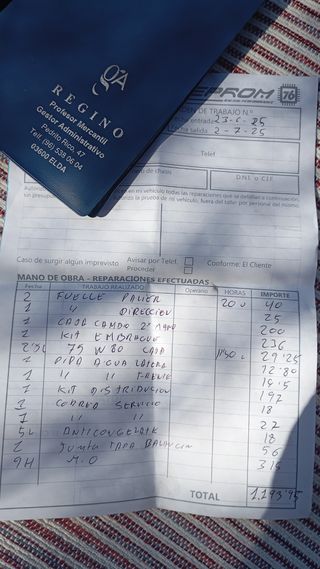 REGINO
Profesor Mercantil
Gestor Administrativo
Pedrito Rico, 47
Telf. (96) 539 06 04
03600 ELDA
EPROM 76
DE TRABAJO N.º
entrada 23-6-25
salida 2-7-25
Telef.
D.N.I. o C.I.F.
en mi vehículo todas las reparaciones que se detallan a continuación,
sin
la prueba de mi vehículo, fuera del taller por personal del mismo.
Caso de surgir algún imprevisto Avisar por Telef. Conforme: El Cliente
Proceder
MANO DE OBRA - REPARACIONES EFECTUADAS
Fecha TRABAJO REALIZADO Operario HORAS IMPORTE
2 FUELLE PALIER 20 U 40
1 " DIRECCION 25
1 200
1 KIT EMBRAGUE 236
75 W80 CAJA 29'25
1 12'80
1 " "
1 KIT DISTRIBUCION 192
1 CORREA SERVICIO 18
1 " " 22
5L ANTICONGELANTE 18
1 JUNTA TAPA BALANCIN 56
9H M.O 315
TOTAL 1.193'95